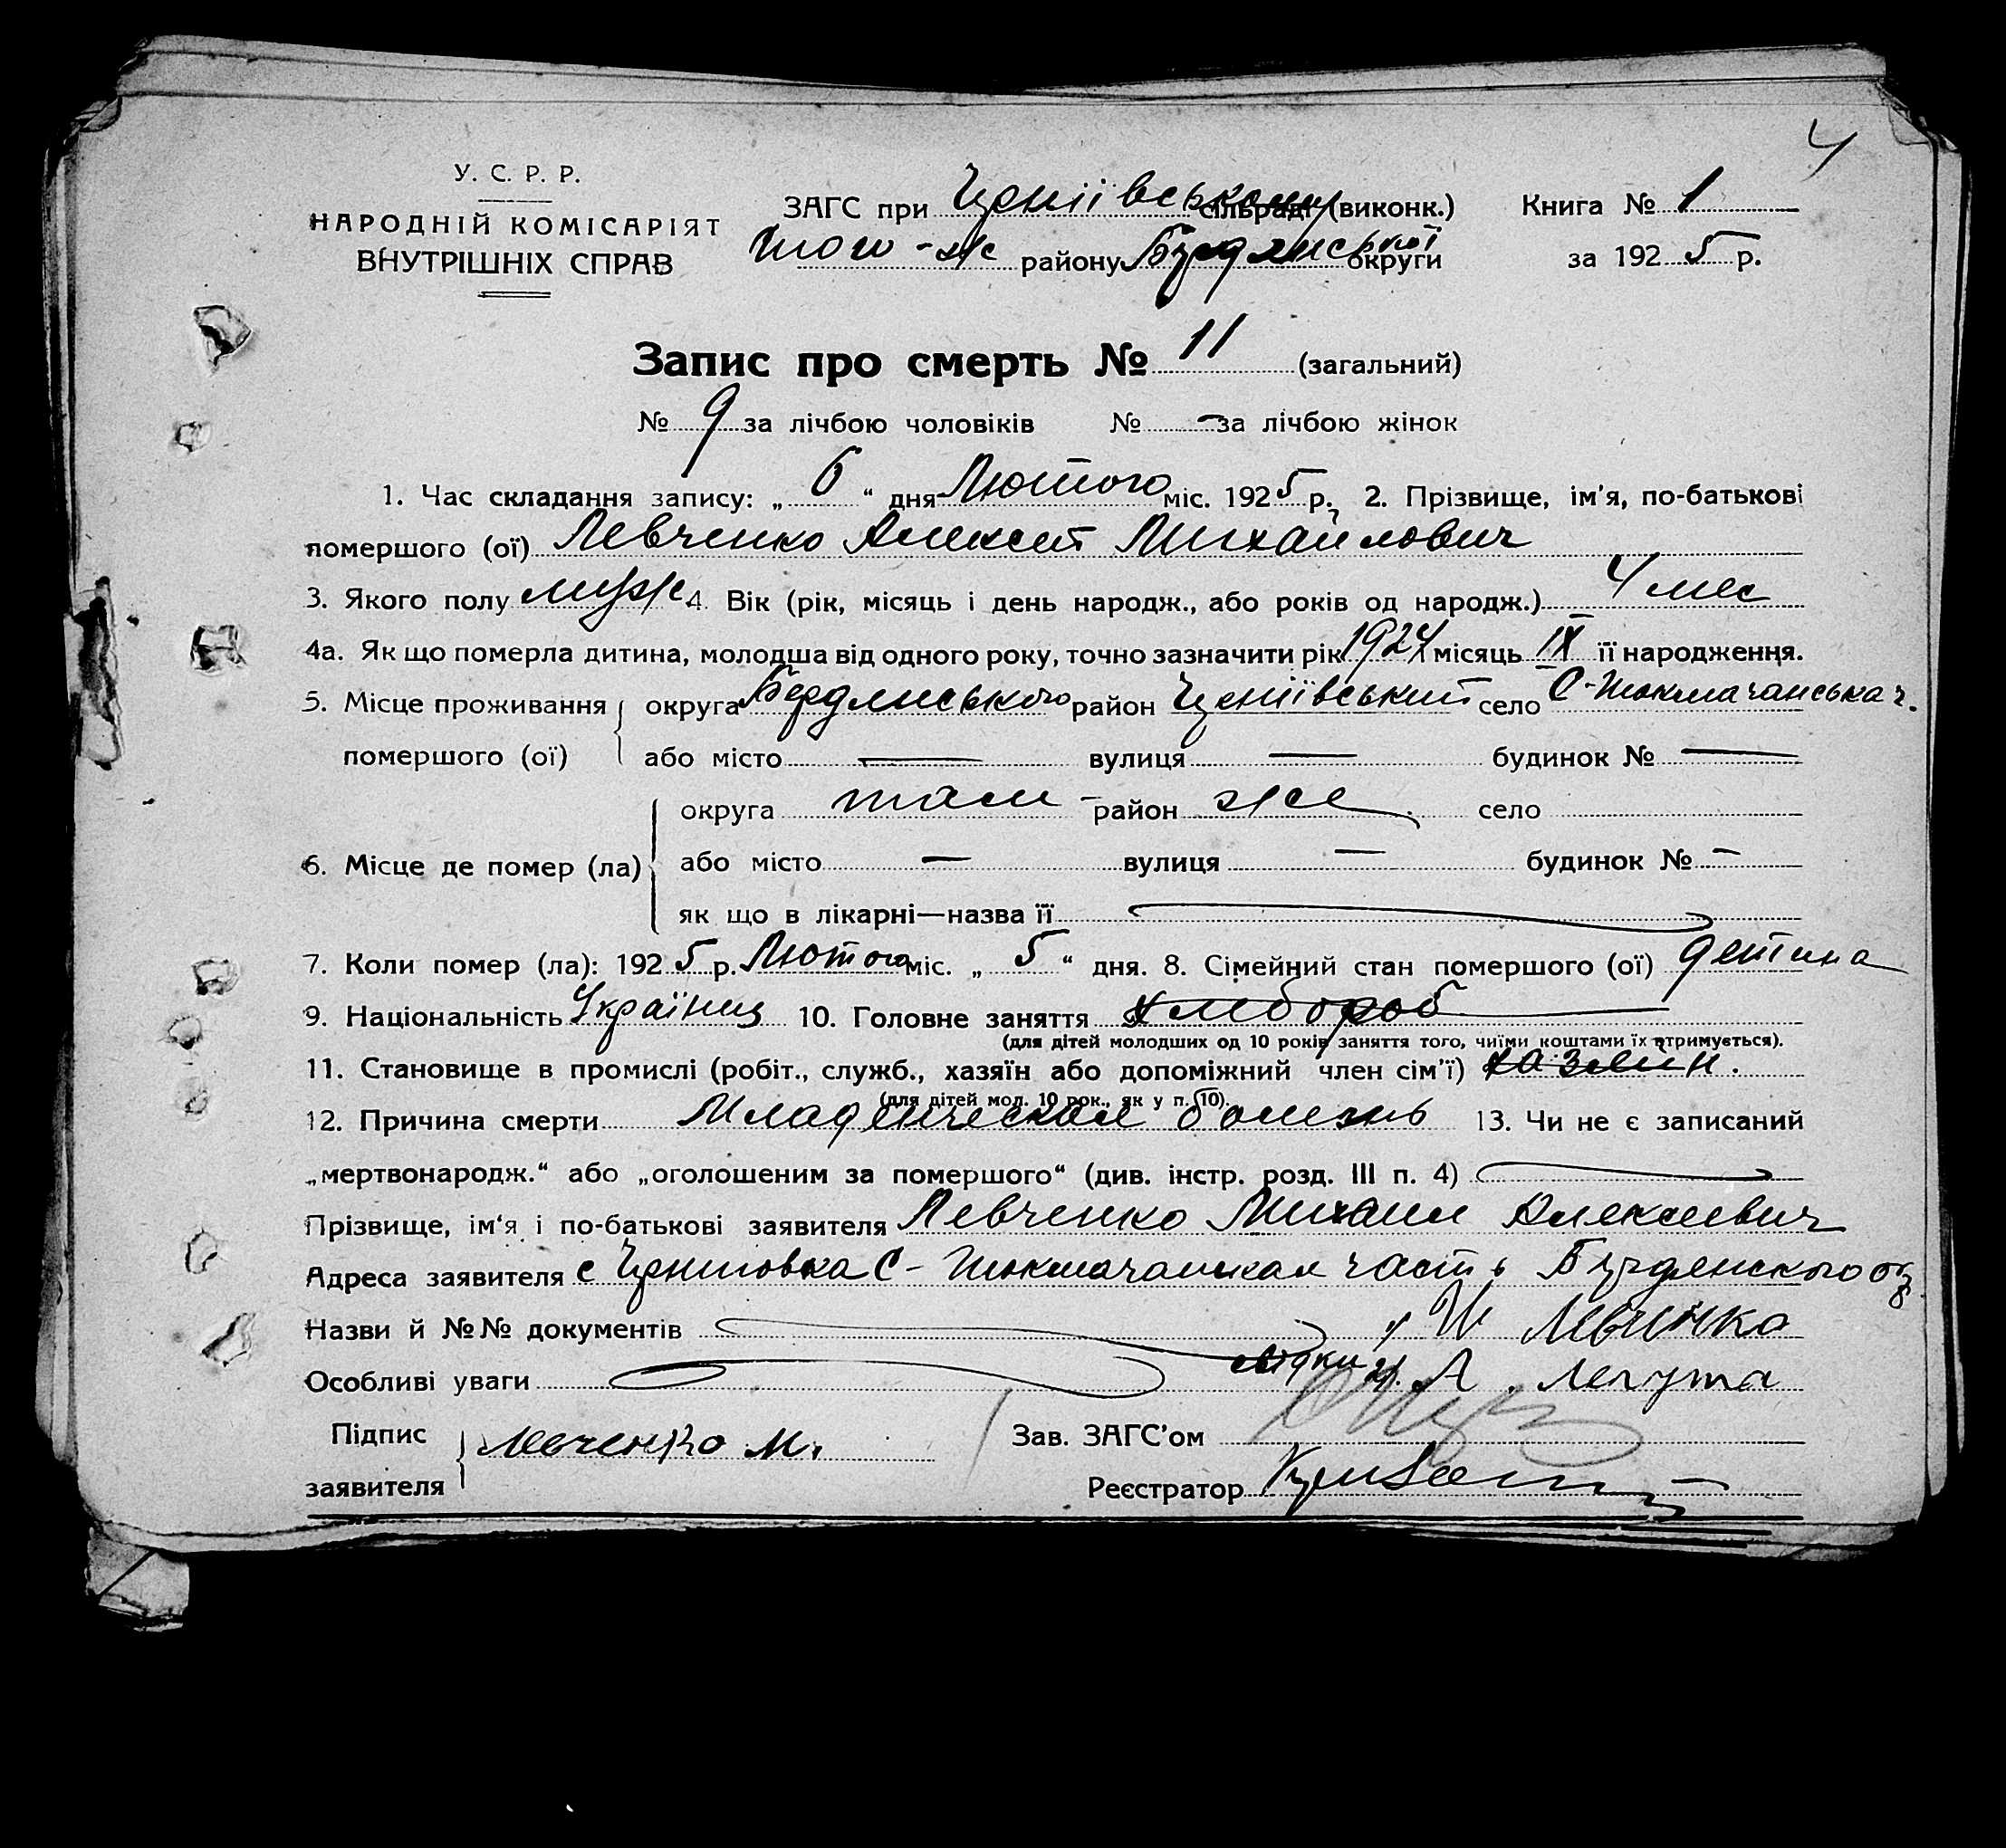 4
У. С. Р. Р.
НАРОДНІЙ КОМІСАРІЯТ
ВНУТРІШНІХ СПРАВ
ЗАГС при сільраді (виконк.) Книга № 1
того-же району округи за 1925 р.
Запис про смерть № 11 (загальний)
№ 9 за лічбою чоловіків № - за лічбою жінок
1. Час складання запису: „ 6 “ дня Лютого міс. 1925 р. 2. Прізвище, ім'я, по-батькові
помершого (ої) Левченко Алексей Михайлович
3. Якого полу муж. 4. Вік (рік, місяць і день народж., або років од народж.) 4 мес
4а. Як що померла дитина, молодша від одного року, точно зазначити рік 1924 місяць IX її народження.
5. Місце проживання округа Бердянського район село С-Токмачанська ч.
помершого (ої) або місто — вулиця — будинок № —
округа там - район же село
6. Місце де помер (ла) або місто — вулиця — будинок № —
як що в лікарні—назва її
7. Коли помер (ла): 1925 р. Лютого міс. „ 5 “ дня. 8. Сімейний стан помершого (ої) детина
9. Національність Українц 10. Головне заняття хлебороб
(для дітей молодших од 10 років заняття того, чиїми коштами їх утримується).
11. Становище в промислі (робіт., служб., хазяїн або допоміжний член сім'ї) хазяин.
(для дітей мол. 10 рок., як у п. 10).
12. Причина смерти Младенческая болезнь 13. Чи не є записаний
„мертвонародж.“ або „оголошеним за помершого“ (див. інстр. розд. III п. 4)
Прізвище, ім'я і по-батькові заявителя Левченко Михаил Алексеевич
Адреса заявителя с Черниговка С-Токмачанская часть Бердянского
Назви й №№ документів Левченко
Особливі уваги свідки А.
Підпис
заявителя Левченко М. Зав. ЗАГС'ом
Реєстратор